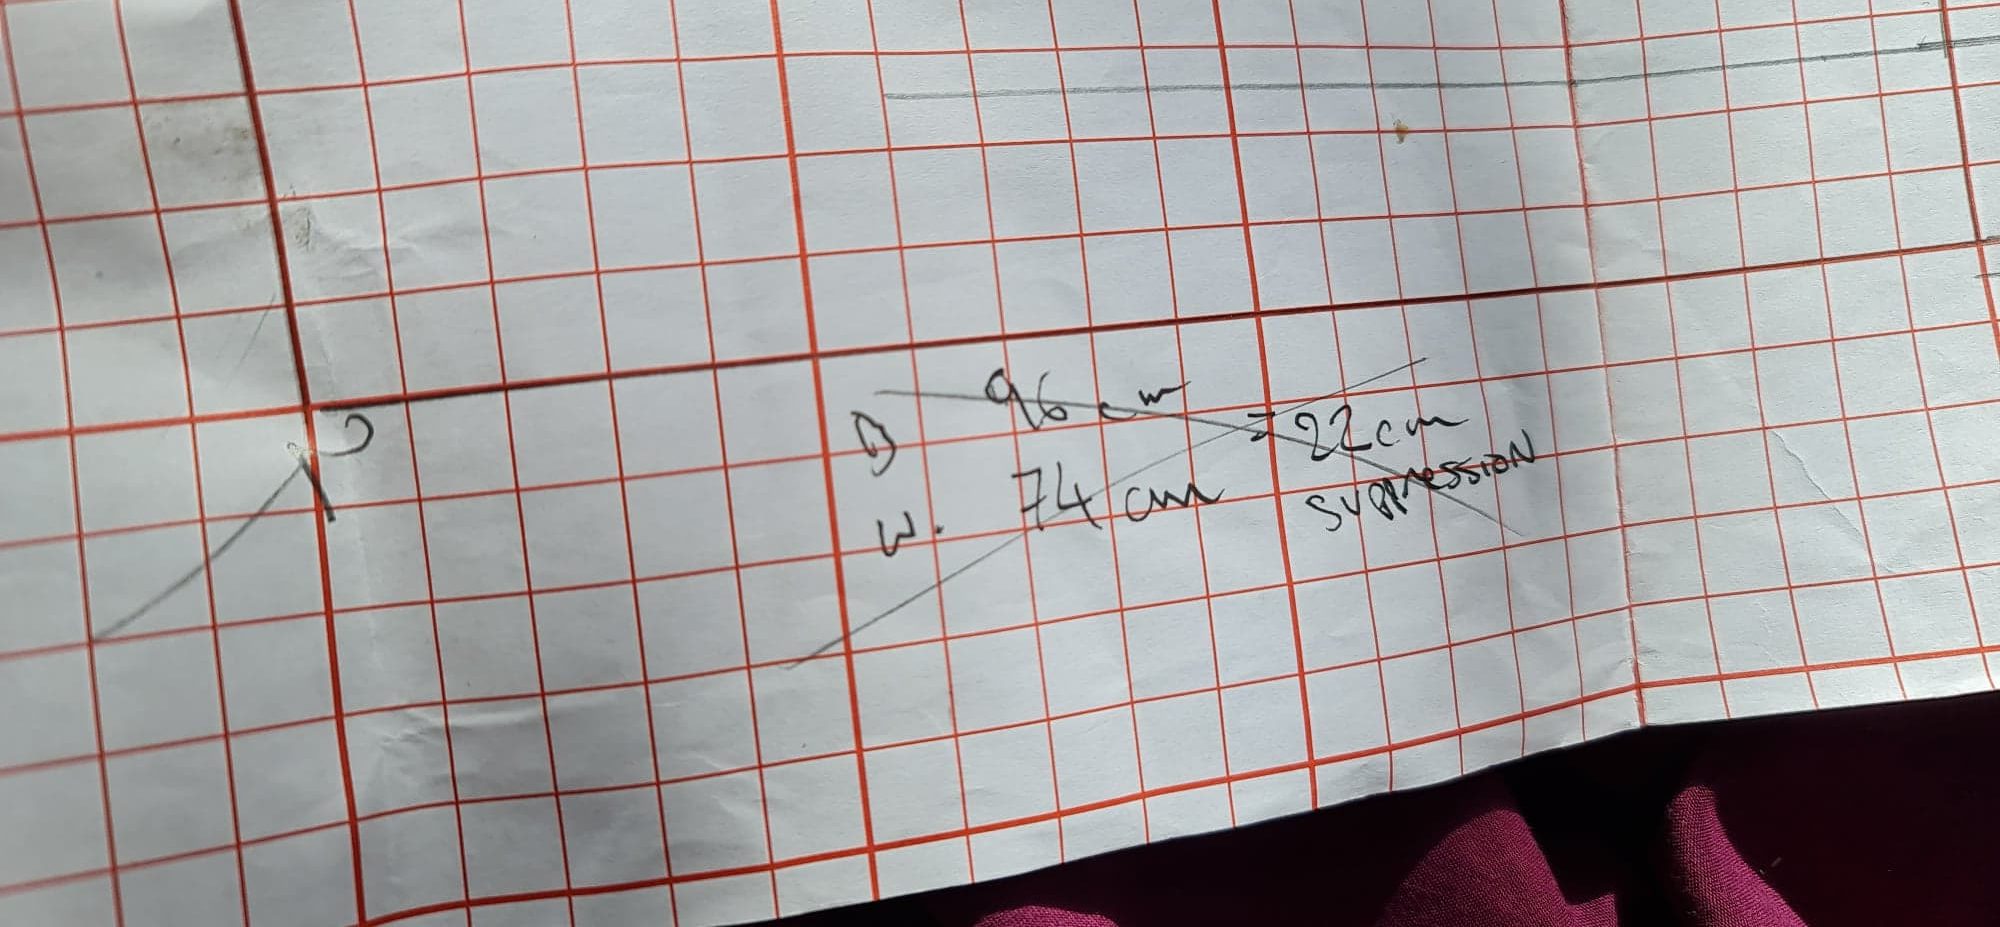 B 96 cm
= 22cm
W. 74 cm
suppression